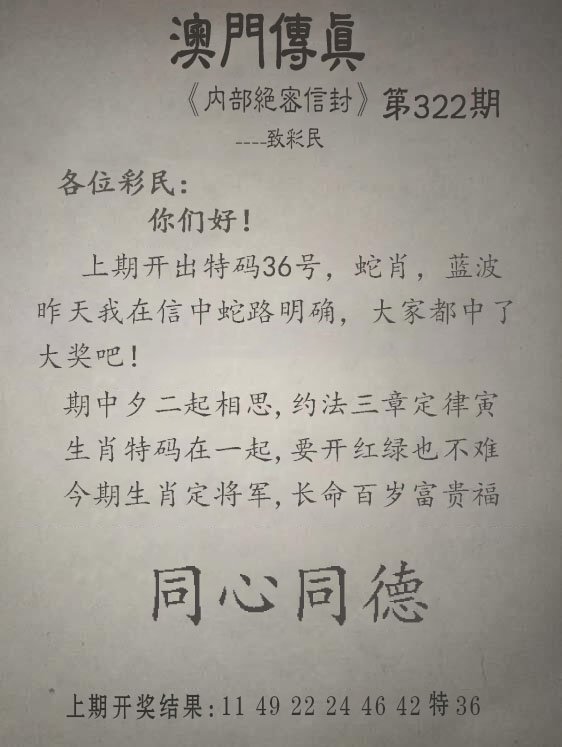 澳門傳眞
《内部絕密信封》第322期
----致彩民
各位彩民:
你们好!
上期开出特码36号，蛇肖，蓝波
昨天我在信中蛇路明确，大家都中了
大奖吧!
期中夕二起相思,约法三章定律寅
生肖特码在一起,要开红绿也不难
今期生肖定将军,长命百岁富贵福
同心同德
上期开奖结果:11 49 22 24 46 42 特 36